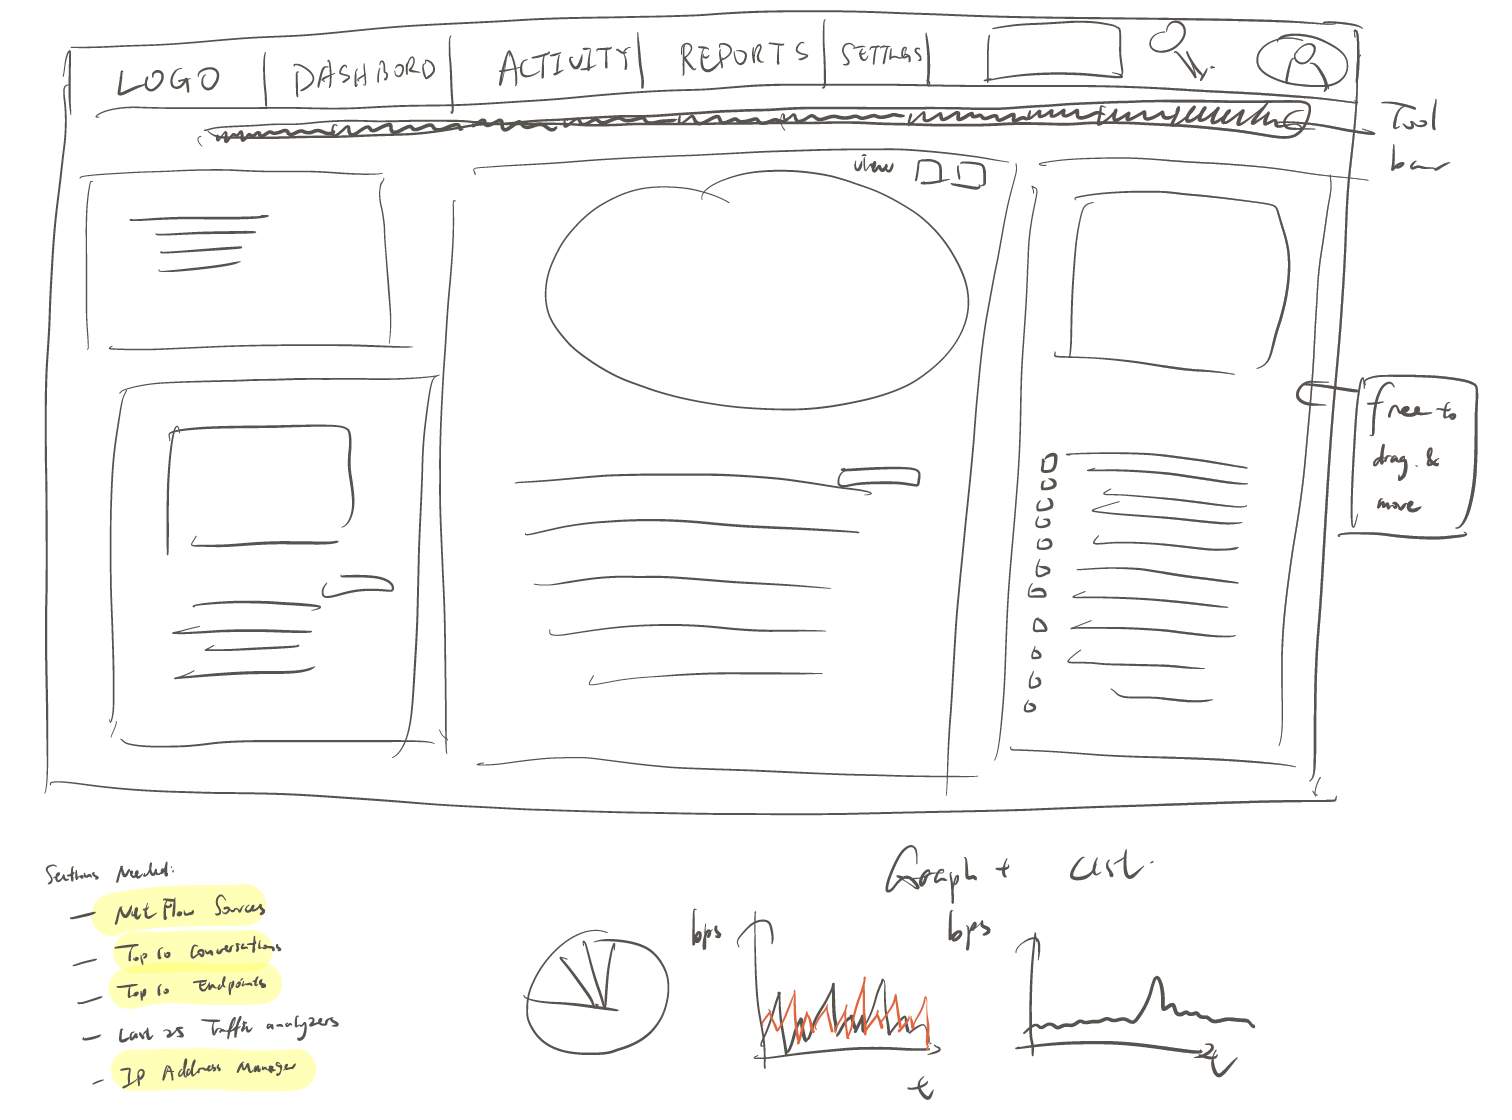 LOGO
DASHBORD
ACTIVITY
REPORTS
SETTINGS
Tool
bar
view
free to
drag &
move
Sections Needed:
– Net Flow Sources
– Top 10 Conversations
– Top 10 Endpoints
– Last 25 Traffic analyzers
– IP Address Manager
Graph + List.
bps
t
bps
t